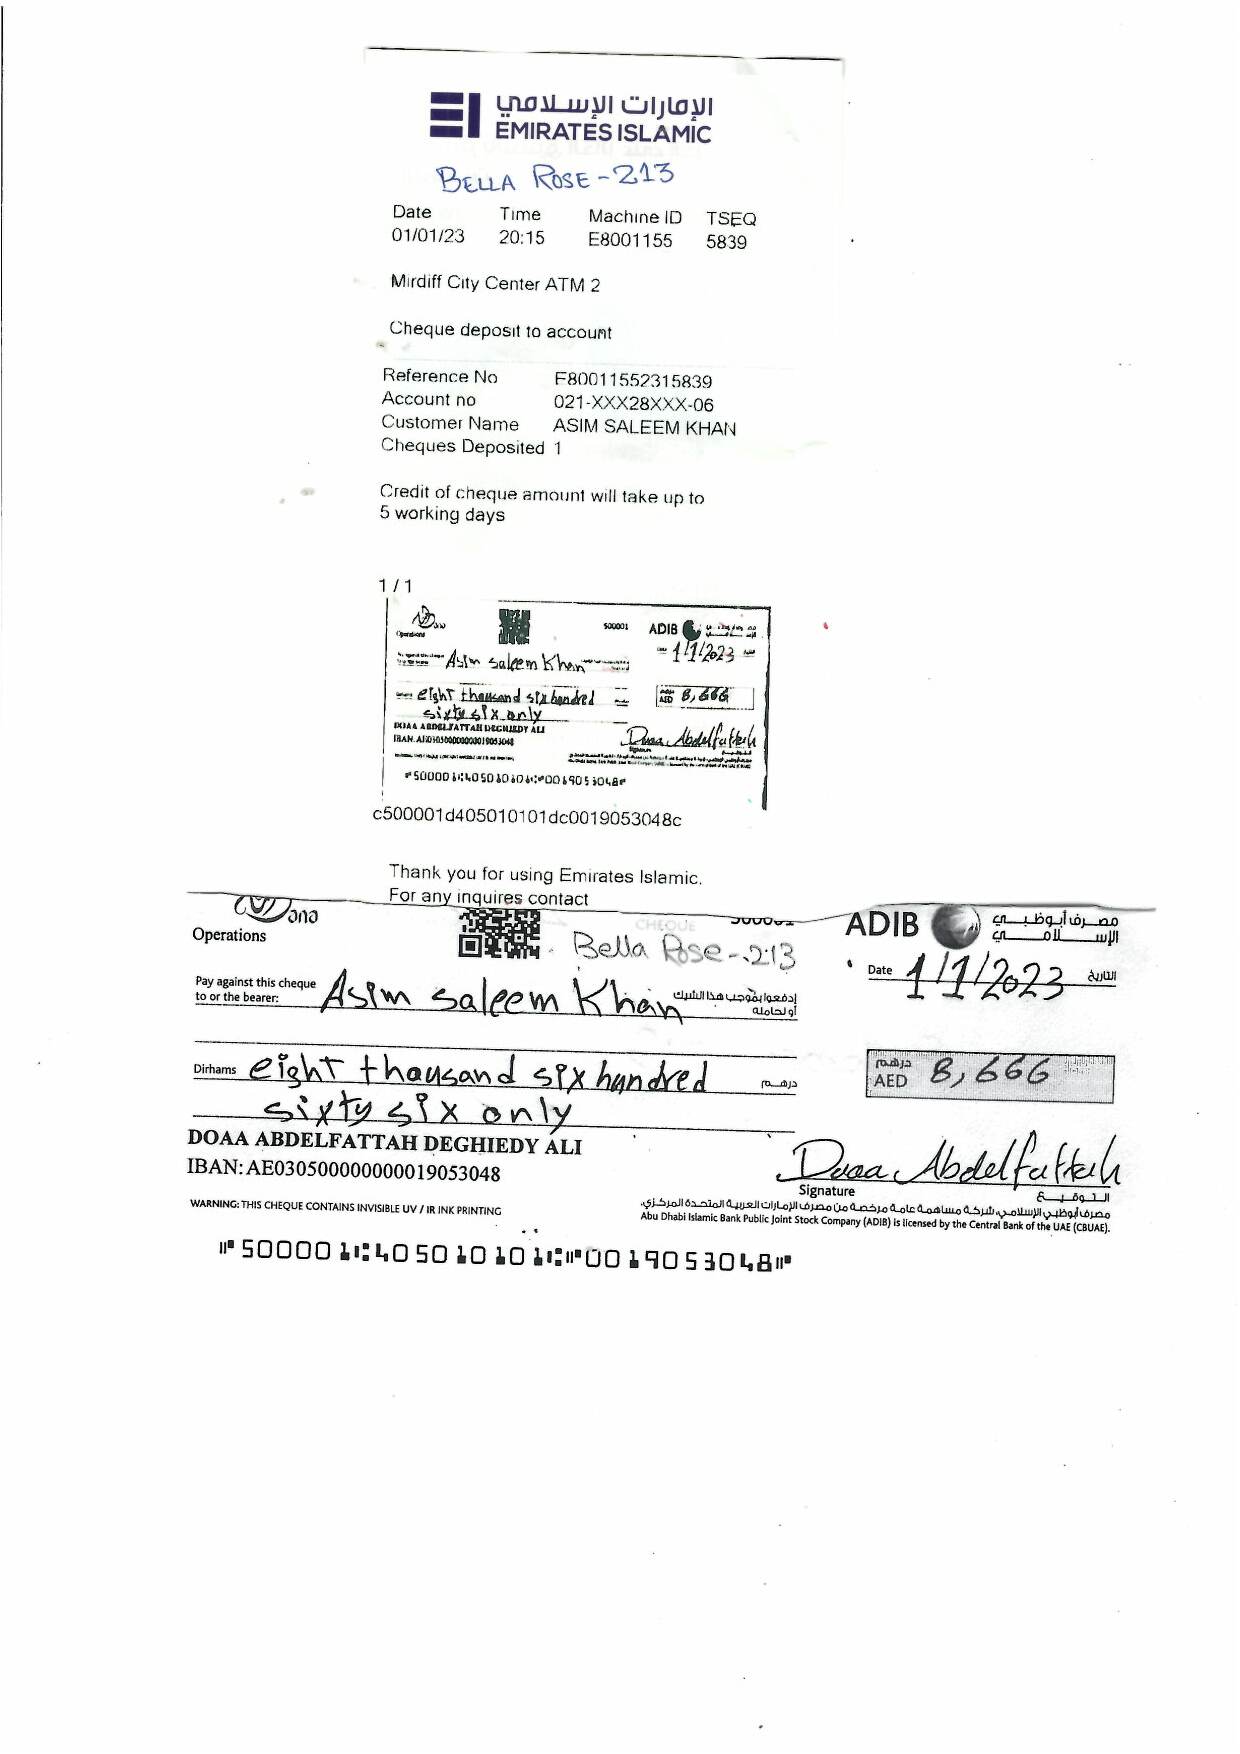 الإمارات الإسلامي
EMIRATES ISLAMIC
BELLA ROSE - 213
Date Time Machine ID TSEQ
01/01/23 20:15 E8001155 5839
Mirdiff City Center ATM 2
Cheque deposit to account
Reference No F80011552315839
Account no 021-XXX28XXX-06
Customer Name ASIM SALEEM KHAN
Cheques Deposited 1
Credit of cheque amount will take up to
5 working days
1 / 1
Operations
500001 ADIB
1/1/2023
Asim saleem Khan
eight thousand six hundred
AED 8,666
sixty six only
DOAA ABDELFATTAH DEGHIEDY ALI
Duaa Abdelfattah
c500001d405010101dc0019053048c
Thank you for using Emirates Islamic.
For any inquires contact
Operations
CHEQUE
Bella Rose - 213
ADIB
مصرف أبوظبي
الإسلامي
Date 1/1/2023 التاريخ
Pay against this cheque
to or the bearer:
Asim saleem Khan
إدفعوا بموجب هذا الشيك
أو لحامله
Dirhams eight thousand six hundred درهم
sixty six only
درهم
AED 8,666
DOAA ABDELFATTAH DEGHIEDY ALI
IBAN: AE030500000000019053048
Duaa Abdelfattah
Signature التوقيع
WARNING: THIS CHEQUE CONTAINS INVISIBLE UV / IR INK PRINTING
مصرف أبوظبي الإسلامي شركة مساهمة عامة مرخصة من مصرف الإمارات العربية المتحدة المركزي.
Abu Dhabi Islamic Bank Public Joint Stock Company (ADIB) is licensed by the Central Bank of the UAE (CBUAE).
⑈500001⑆405010101⑆⑈0019053048⑈